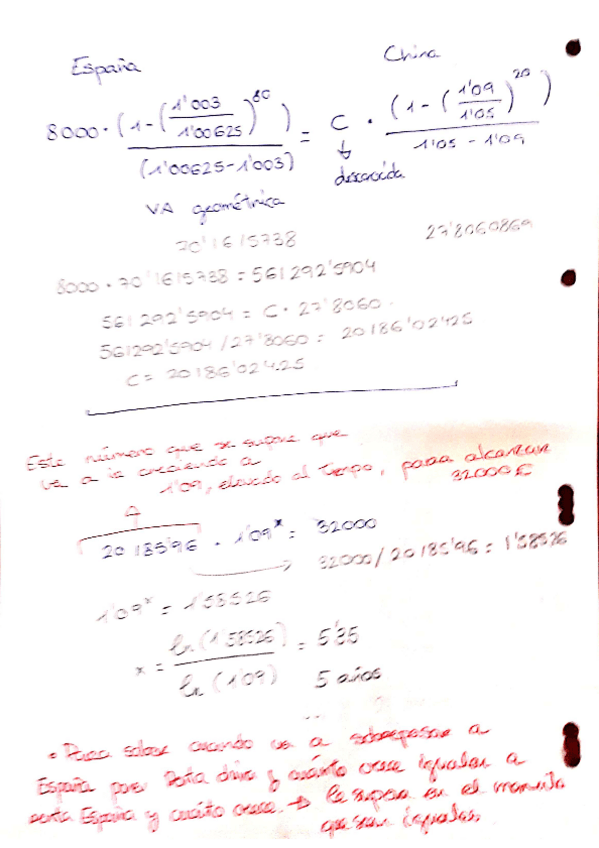 España
China
8000 · (1 - (1'003 / 1'00625)^80) / (1'00625 - 1'003) = C · (1 - (1'09 / 1'05)^20) / 1'05 - 1'09
↓
desconocida
VA geométrica
70'1615738
27'8060869
8000 · 70'1615738 = 561292'5904
561292'5904 = C · 27'8060.
561292'5904 / 27'8060 = 20186'02425
C = 20186'02425
Este número que se supone que
va a ir creciendo a
1'09, elevado al tiempo, para alcanzar
32000 €
20185'96 · 1'09^x = 32000
32000 / 20185'96 = 1'58526
1'09^x = 1'58526
x = ln (1'58526) / ln (1'09) = 5'35
5 años
• Para saber cuando va a sobrepasar a
España pones Renta China y cuánto crece igualas a
renta España y cuánto crece. → la supera en el momento
que sean iguales.